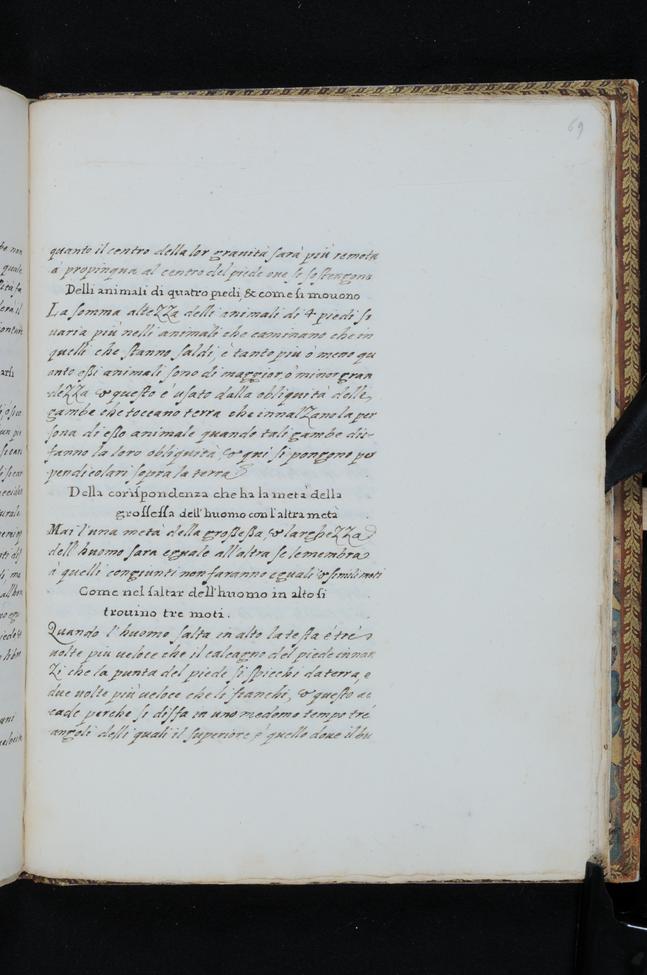 69
quanto il centro della lor gravità sarà più remota
à propinqua al centro del piede oue si sostengono
Delli animali di quatro piedi, & come si mouono
La somma alteZZa delli animali di 4 piedi si
uaria più nelli animali che caminano che in
quelli che stanno saldi, e tanto piu ò meno qu
anto essi animali sono di maggior, ò minor gran
deZZa & questo è usato dalla obliquità delle
gambe che toccano terra che innalZano la per
sona di esso animale quando tali gambe dis-
fanno la loro obliquità, & qui si pongono per
pendicolari sopra la terra
Della corispondenza che ha la metà della
grossessa dell'huomo con l'altra metà
Mai l'una metà della grossessa, & largheZZa
dell'huomo sara eguale all'altra se le membra
à quelli congiunti non faranno eguali & simili moti
Come nel saltar dell'huomo in alto si
trouino tre moti.
Quando l'huomo salta in alto la testa è trè
uolte piu veloce che il calcagno del piede innan
Zi che la punta del piede si spicchi da terra, e
due uolte più veloce che li fianchi, & questo ac
cade perche si disfa in uno medemo tempo trè
angoli delli quali il superiore è quello doue il bu